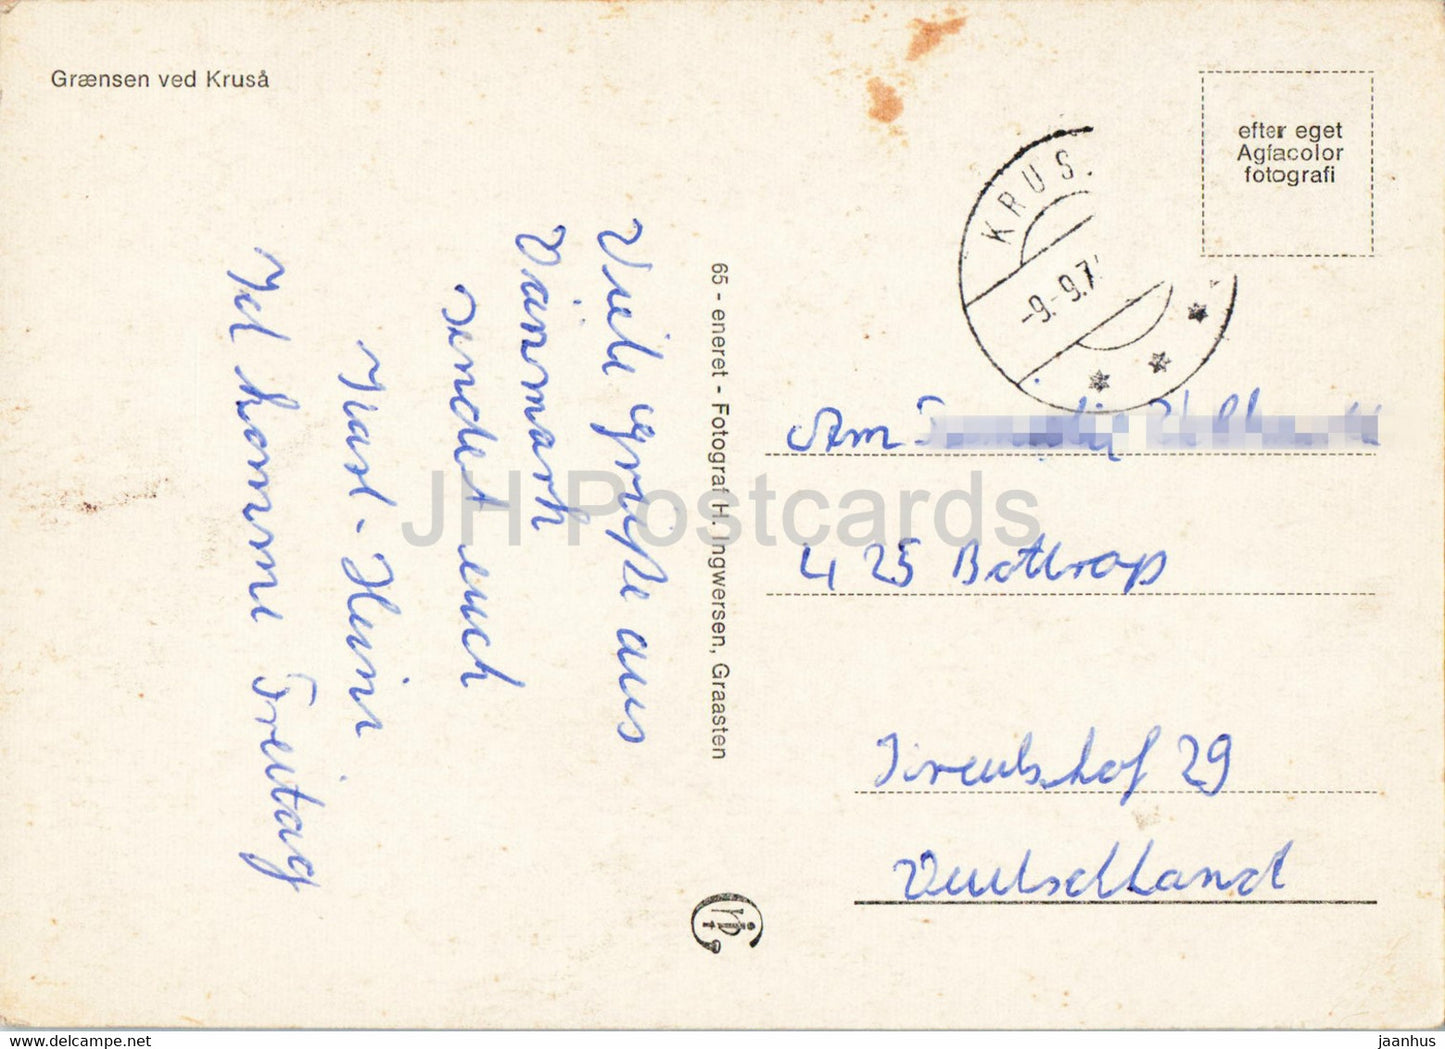 Grænsen ved Kruså
efter eget
Agfacolor
fotografi
KRUS
-9.-9.7
Viele Grüße aus
Dänmark
sendet euch
Karl-Heini
Ich komme Freitag
65 - eneret - Fotograf H. Ingwersen, Graasten
Am
425 Bottrop
29
Deutschland
JH Postcards
www.delcampe.net
jaanhus